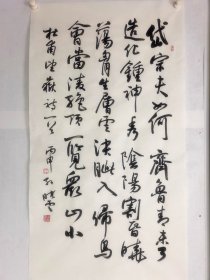 岱宗夫如何齊魯青未了
造化鍾神秀陰陽割昏曉
蕩胸生層雲決眦入歸鳥
會當凌絕頂一覽眾山小
杜甫望嶽詩一首丙申